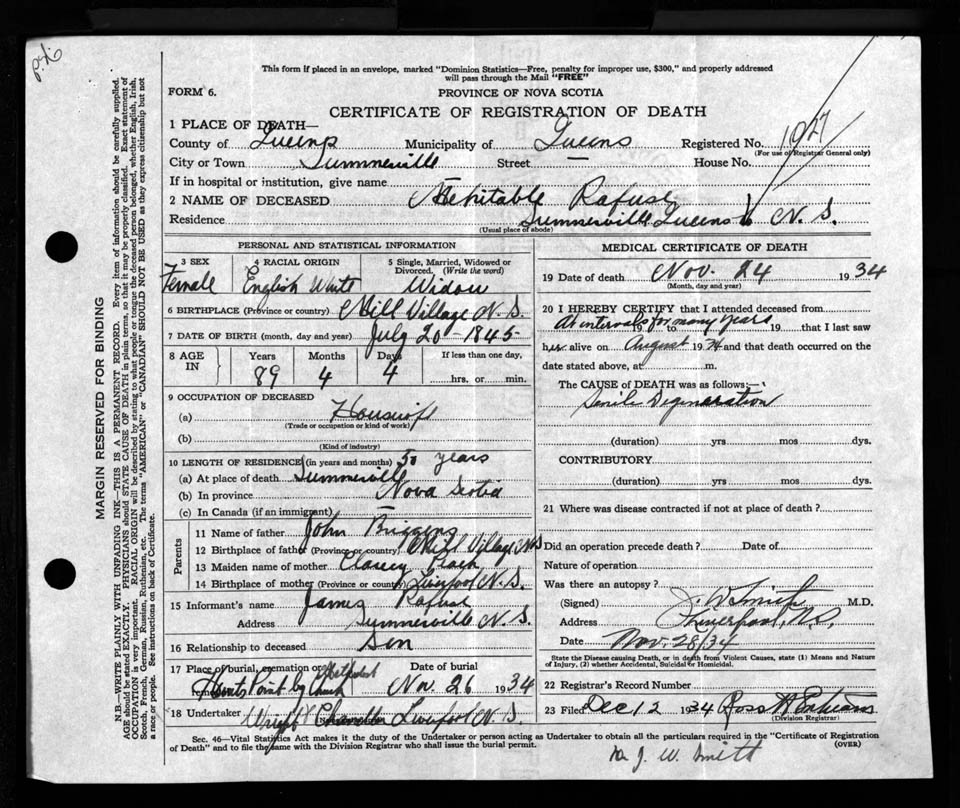 This form if placed in an envelope, marked "Dominion Statistics—Free, penalty for improper use, $300," and properly addressed
will pass through the Mail "FREE"
FORM 6.
PROVINCE OF NOVA SCOTIA
CERTIFICATE OF REGISTRATION OF DEATH
1 PLACE OF DEATH—
County of Queens Municipality of Queens Registered No. 1927
(For use of Registrar General only)
City or Town Summerville Street — House No.
If in hospital or institution, give name
2 NAME OF DECEASED Mehitable Rafuse
Residence Summerville Queens N. S.
(Usual place of abode)
PERSONAL AND STATISTICAL INFORMATION
3 SEX 4 RACIAL ORIGIN 5 Single, Married, Widowed or Divorced. (Write the word)
Female English White Widow
6 BIRTHPLACE (Province or country) Mill Village N. S.
7 DATE OF BIRTH (month, day and year) July 20 - 1845
8 AGE IN Years Months Days If less than one day,
89 4 4 hrs. or min.
9 OCCUPATION OF DECEASED
(a) Housewife
(Trade or occupation or kind of work)
(b)
(Kind of industry)
10 LENGTH OF RESIDENCE (in years and months) 50 years
(a) At place of death Summerville
(b) In province Nova Scotia
(c) In Canada (if an immigrant)
Parents
11 Name of father John
12 Birthplace of father (Province or country) Mill Village N S
13 Maiden name of mother
14 Birthplace of mother (Province or country) Liverpool N. S.
15 Informant's name James Rafuse
Address Summerville N. S.
16 Relationship to deceased Son
17 Place of burial, cremation or removal Hunts Point by Church Date of burial
Nov. 26 1934
18 Undertaker Wright Liverpool N. S.
MEDICAL CERTIFICATE OF DEATH
19 Date of death Nov. 24 1934
(Month, day and year)
20 I HEREBY CERTIFY that I attended deceased from
At intervals for many years 19 19 that I last saw
her alive on August 1934 and that death occurred on the
date stated above, at m.
The CAUSE of DEATH was as follows:—
Senile Degeneration
(duration) yrs mos dys.
CONTRIBUTORY
(duration) yrs mos dys.
21 Where was disease contracted if not at place of death?
Did an operation precede death? Date of
Nature of operation
Was there an autopsy?
(Signed) J. W Smith M.D.
Address Liverpool, N.S.
Date Nov. 28/34
State the Disease causing Death, or in death from Violent Causes, state (1) Means and Nature of Injury, (2) whether Accidental, Suicidal or Homicidal.
22 Registrar's Record Number
23 Filed Dec 12 1934 Ross
(Division Registrar)
Sec. 46—Vital Statistics Act makes it the duty of the Undertaker or person acting as Undertaker to obtain all the particulars required in the "Certificate of Registration
of Death" and to file the same with the Division Registrar who shall issue the burial permit.
(OVER)
J. W. Smith
MARGIN RESERVED FOR BINDING
N.B.—WRITE PLAINLY WITH UNFADING INK—THIS IS A PERMANENT RECORD. Every item of information should be carefully supplied.
AGE should be stated EXACTLY. PHYSICIANS should STATE CAUSE OF DEATH in plain terms, so that it may be properly classified. Exact statement of
OCCUPATION is very important. RACIAL ORIGIN will be described by stating to what people or tongue the deceased person belonged, whether English, Irish,
Scotch, French, German, Russian, Ruthenian, etc. The terms "AMERICAN" or "CANADIAN" SHOULD NOT BE USED as they express citizenship but not
a race or people. See instructions on back of Certificate.